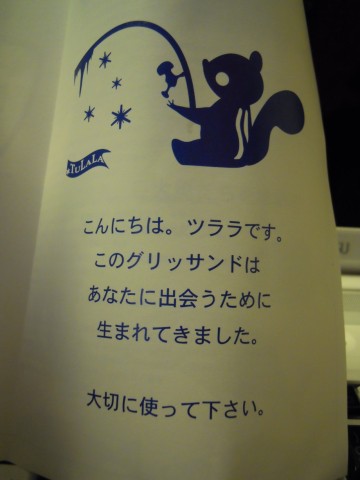 TULALA
こんにちは。ツララです。
このグリッサンドは
あなたに出会うために
生まれてきました。
大切に使って下さい。